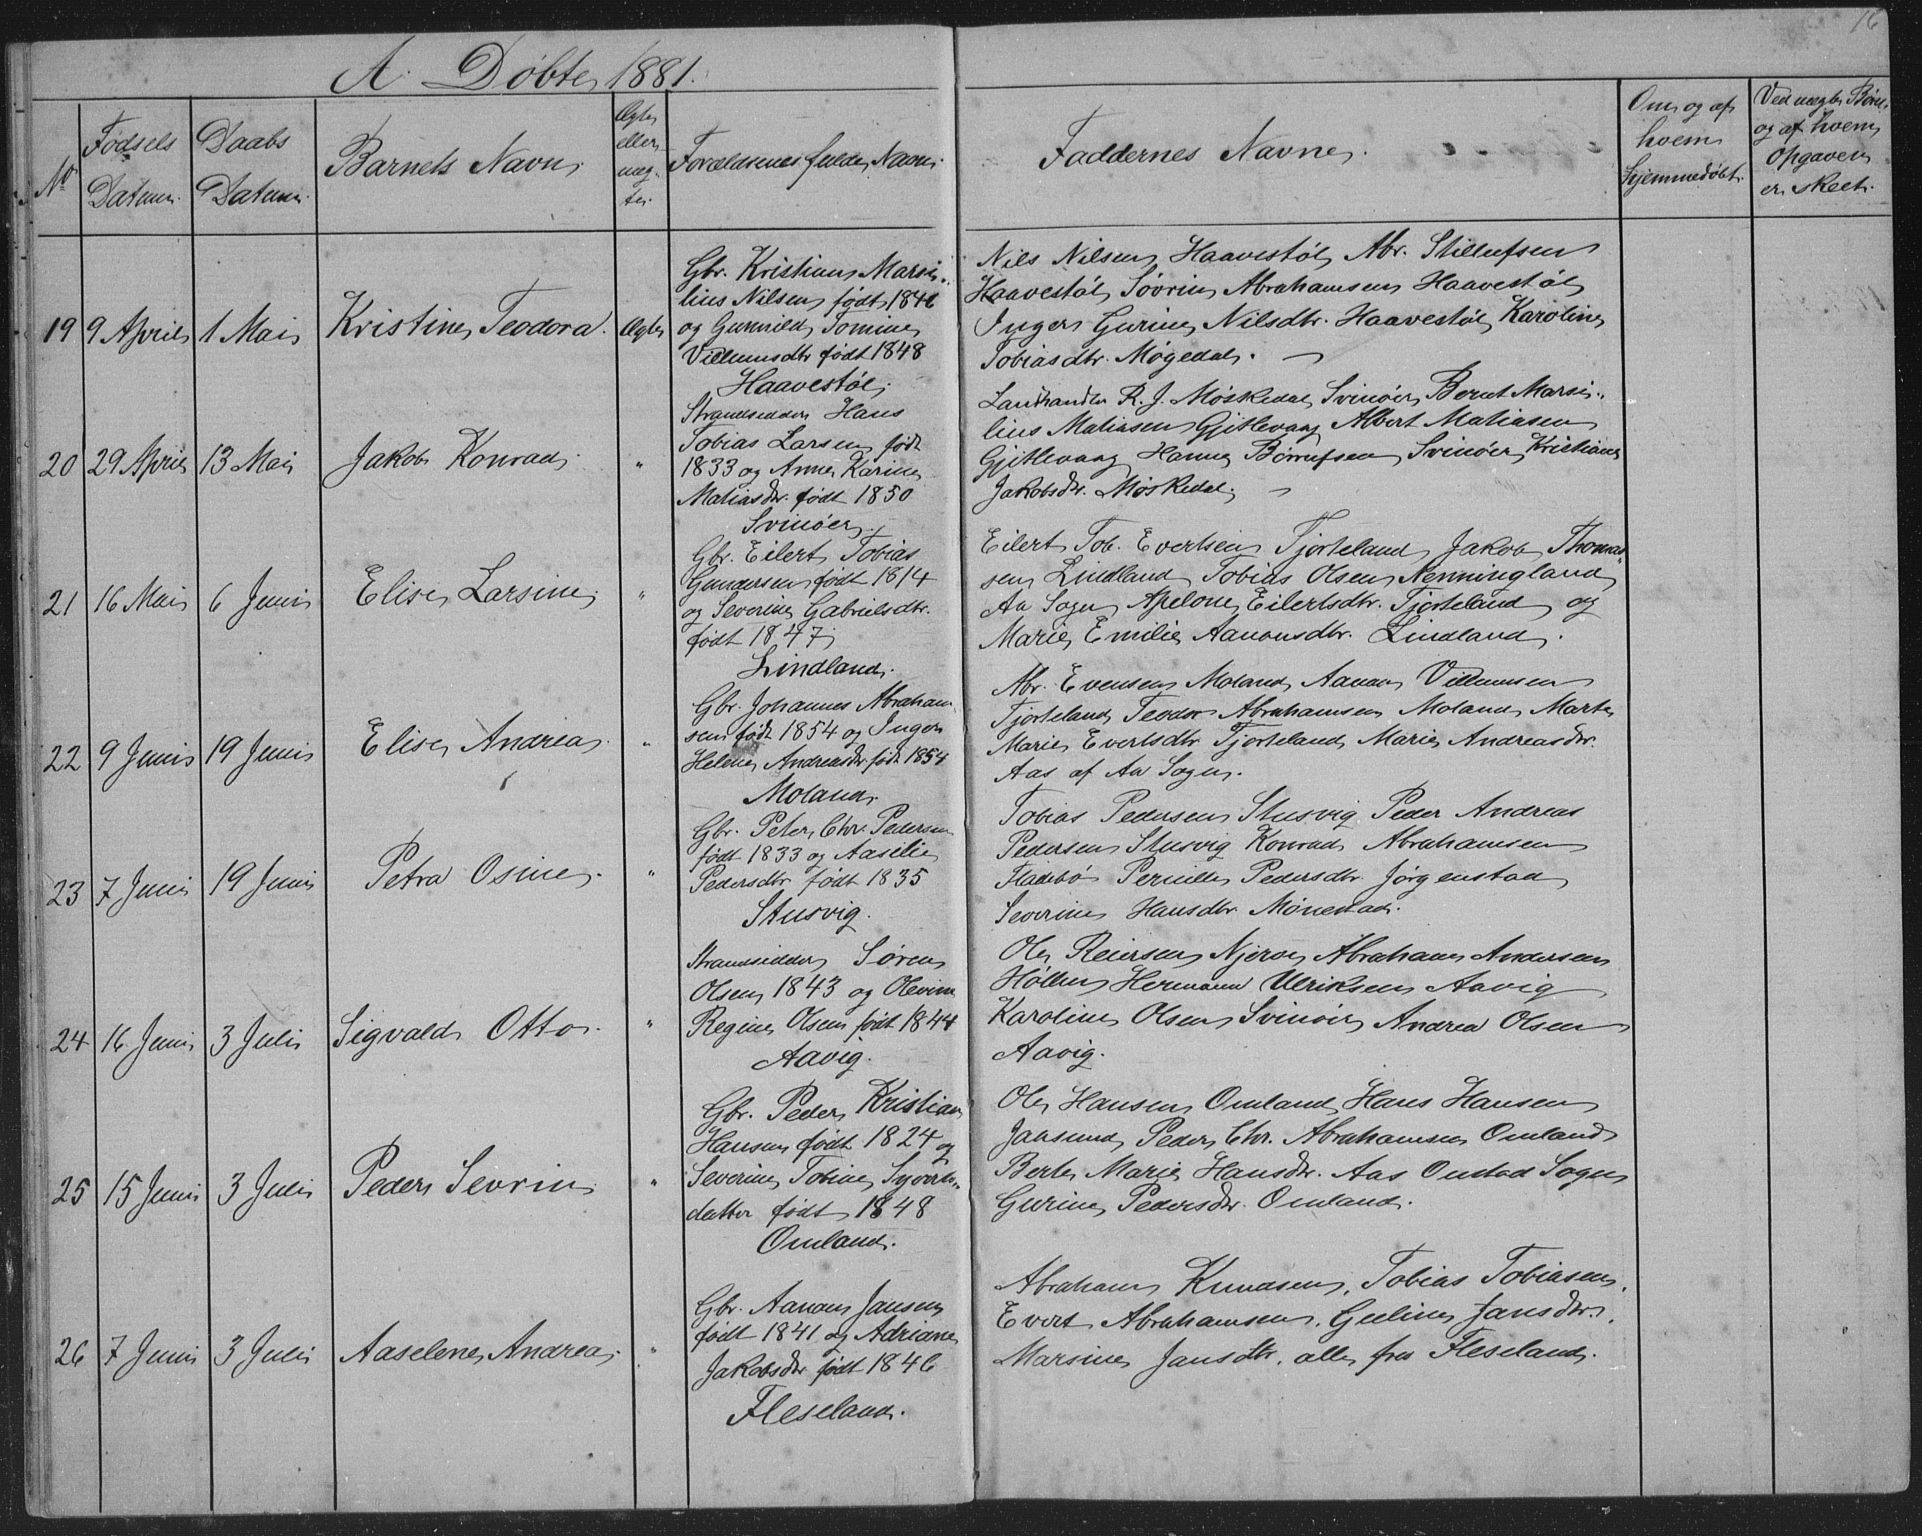 16
A. Døbte 1881.
No
Fødsels Datum.
Daabs Datum.
Barnets Navn.
Ægte eller uæg-te.
Forældrenes fulde Navn.
Faddernes Navne.
Om og af hvem Hjemmedøbt.
Ved uægte Børn og af hvem Opgaven er skeet.
19 9 April 1 Mai Kristine Teodora. Ægte
Gbr. Kristian Marsi-
lius Nilsen født 1846
og Gunnild Tomine
Villumsdtr født 1848
Haavestøl.
Nils Nilsen Haavestøl, Abr. Stillufsen
Haavestøl, Søvrin Abrahamsen Haavestøl
Inger Gurine Nilsdtr. Haavestøl, Karoline
Tobiasdtr. Møgedal. —
20 29 April 13 Mai Jakob Konrad. "
Strandsidder Hans
Tobias Larsen født
1833 og Anne Karine
Matiasdr. født 1850
Svinøer.
Landhandler R. J. Møskedal, Svinøer, Bernt Marsi-
lius Matiasen Gjitlevaag Albert Matiasen
Gjitlevaag Hanne Børrufsen, Svinøer, Kristiane
Jakobsdr. Møskedal. —
21 16 Mai 6 Juni Elise Larsine. "
Gbr. Eilert Tobias
Gundersen født 1814
og Severine Gabrielsdtr.
født 1847
Lindland.
Eilert Tob. Evertsen Tjorteland, Jakob Thomas-
sen Lindland Tobias Olsen Nenningland
Aa Sogn, Apelone Eilertsdtr. Tjorteland og
Marie Emilie Aanonsdtr. Lindland.
22 9 Juni 19 Juni Elise Andrea. "
Gbr. Johannes Abraham-
sen født 1854 og Inger
Helene Andreasdr. født 1854
Moland.
Abr. Evensen Moland, Aanon Villumsen
Tjorteland, Teodor Abrahamsen Moland, Marte
Marie Evertsdtr Tjorteland, Marie Andreasdr.
Aas af Aa Sogn.
23 7 Juni 19 Juni Petra Osine. "
Gbr. Peter Chr. Pedersen
født 1833 og Aaselie
Pedersdtr født 1835
Stusvig.
Tobias Pedersen Stusvig, Peder Andreas
Pedersen Stusvig Konrad Abrahamsen
Fladebø Pernille Pedersdtr. Jörgenstad
Severine Hansdtr. Mønestad.
24 16 Juni 3 Juli Sigvald Otto. "
Strandsidder Søren
Olsen 1843 og Olevine
Regine Olsen født 1844
Aavig.
Ole Reiersen Njerve Abraham Andersen
Høllen Hermann Ulriksen Aavig
Karoline Olsen Svinøer, Andrea Olsen
Aavig.
25 15 Juni 3 Juli Peder Sevrin. "
Gbr. Peder Kristian
Hansen født 1824 og
Severine Tobine Syverts-
datter født 1848
Omland.
Ole Hansen Omland, Hans Hansen
Jaasund, Peder Chr. Abrahamsen Omland
Berte Marie Hansdr. Aas Oustad Sogn
Gurine Pedersdr. Omland.
26 7 Juni 3 Juli Aaselene Andrea. "
Gbr. Aanon Jansen
født 1841 og Adriane
Jakobsdr født 1846
Fleseland.
Abraham Knudsen, Tobias Tobiasen,
Evert Abrahamsen, Geline Jansdr.,
Marsine Jansdtr, alle fra Fleseland.